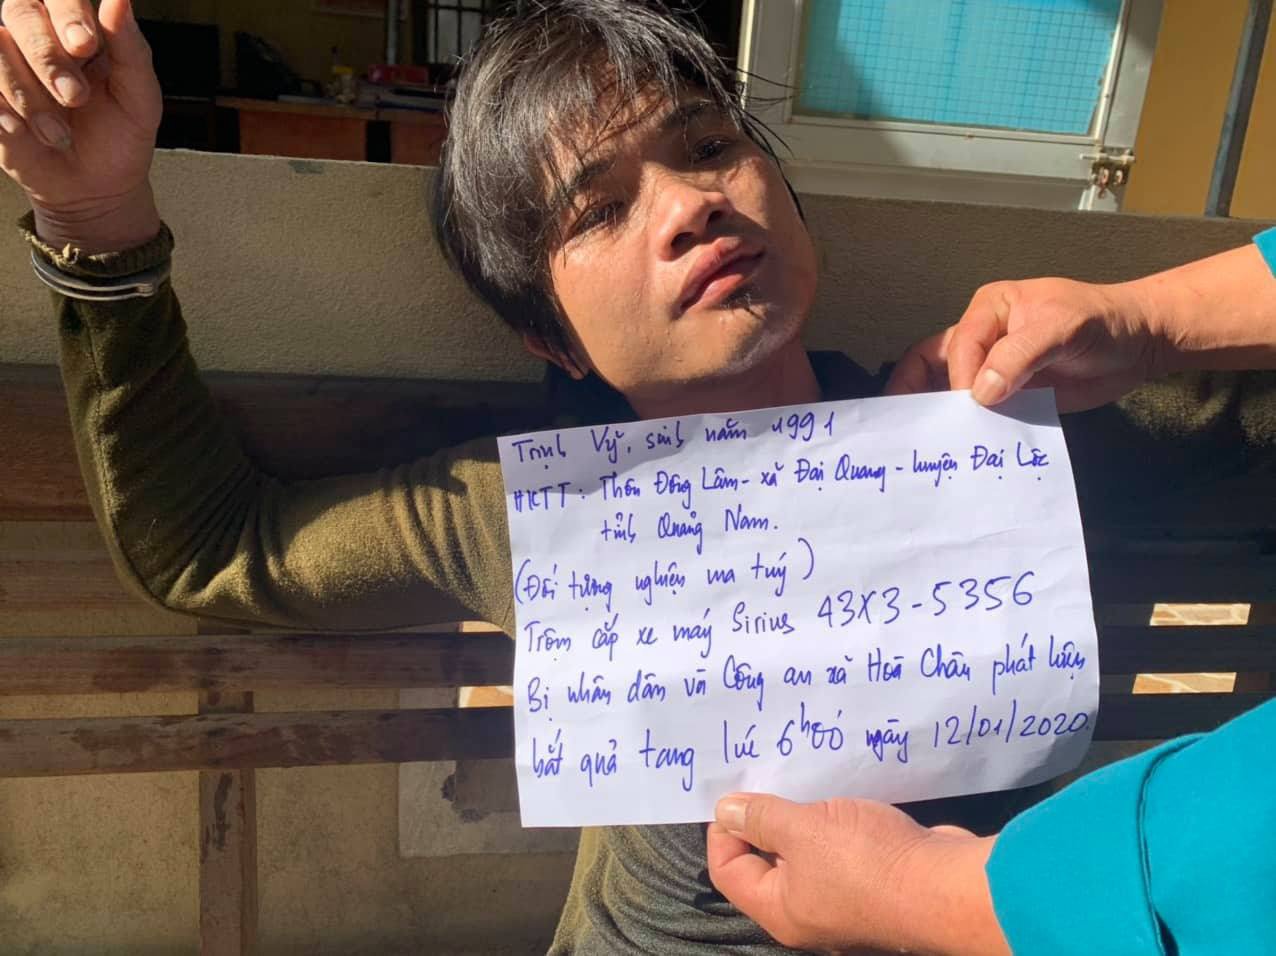 Trịnh Vỹ, sinh năm 1991
HKTT: Thôn Đông Lâm - xã Đại Quang - huyện Đại Lộc
tỉnh Quảng Nam.
(Đối tượng nghiện ma tuý)
Trộm cắp xe máy Sirius 43X3-5356
Bị nhân dân và Công an xã Hoà Châu phát hiện
bắt quả tang lúc 6h00 ngày 12/01/2020.